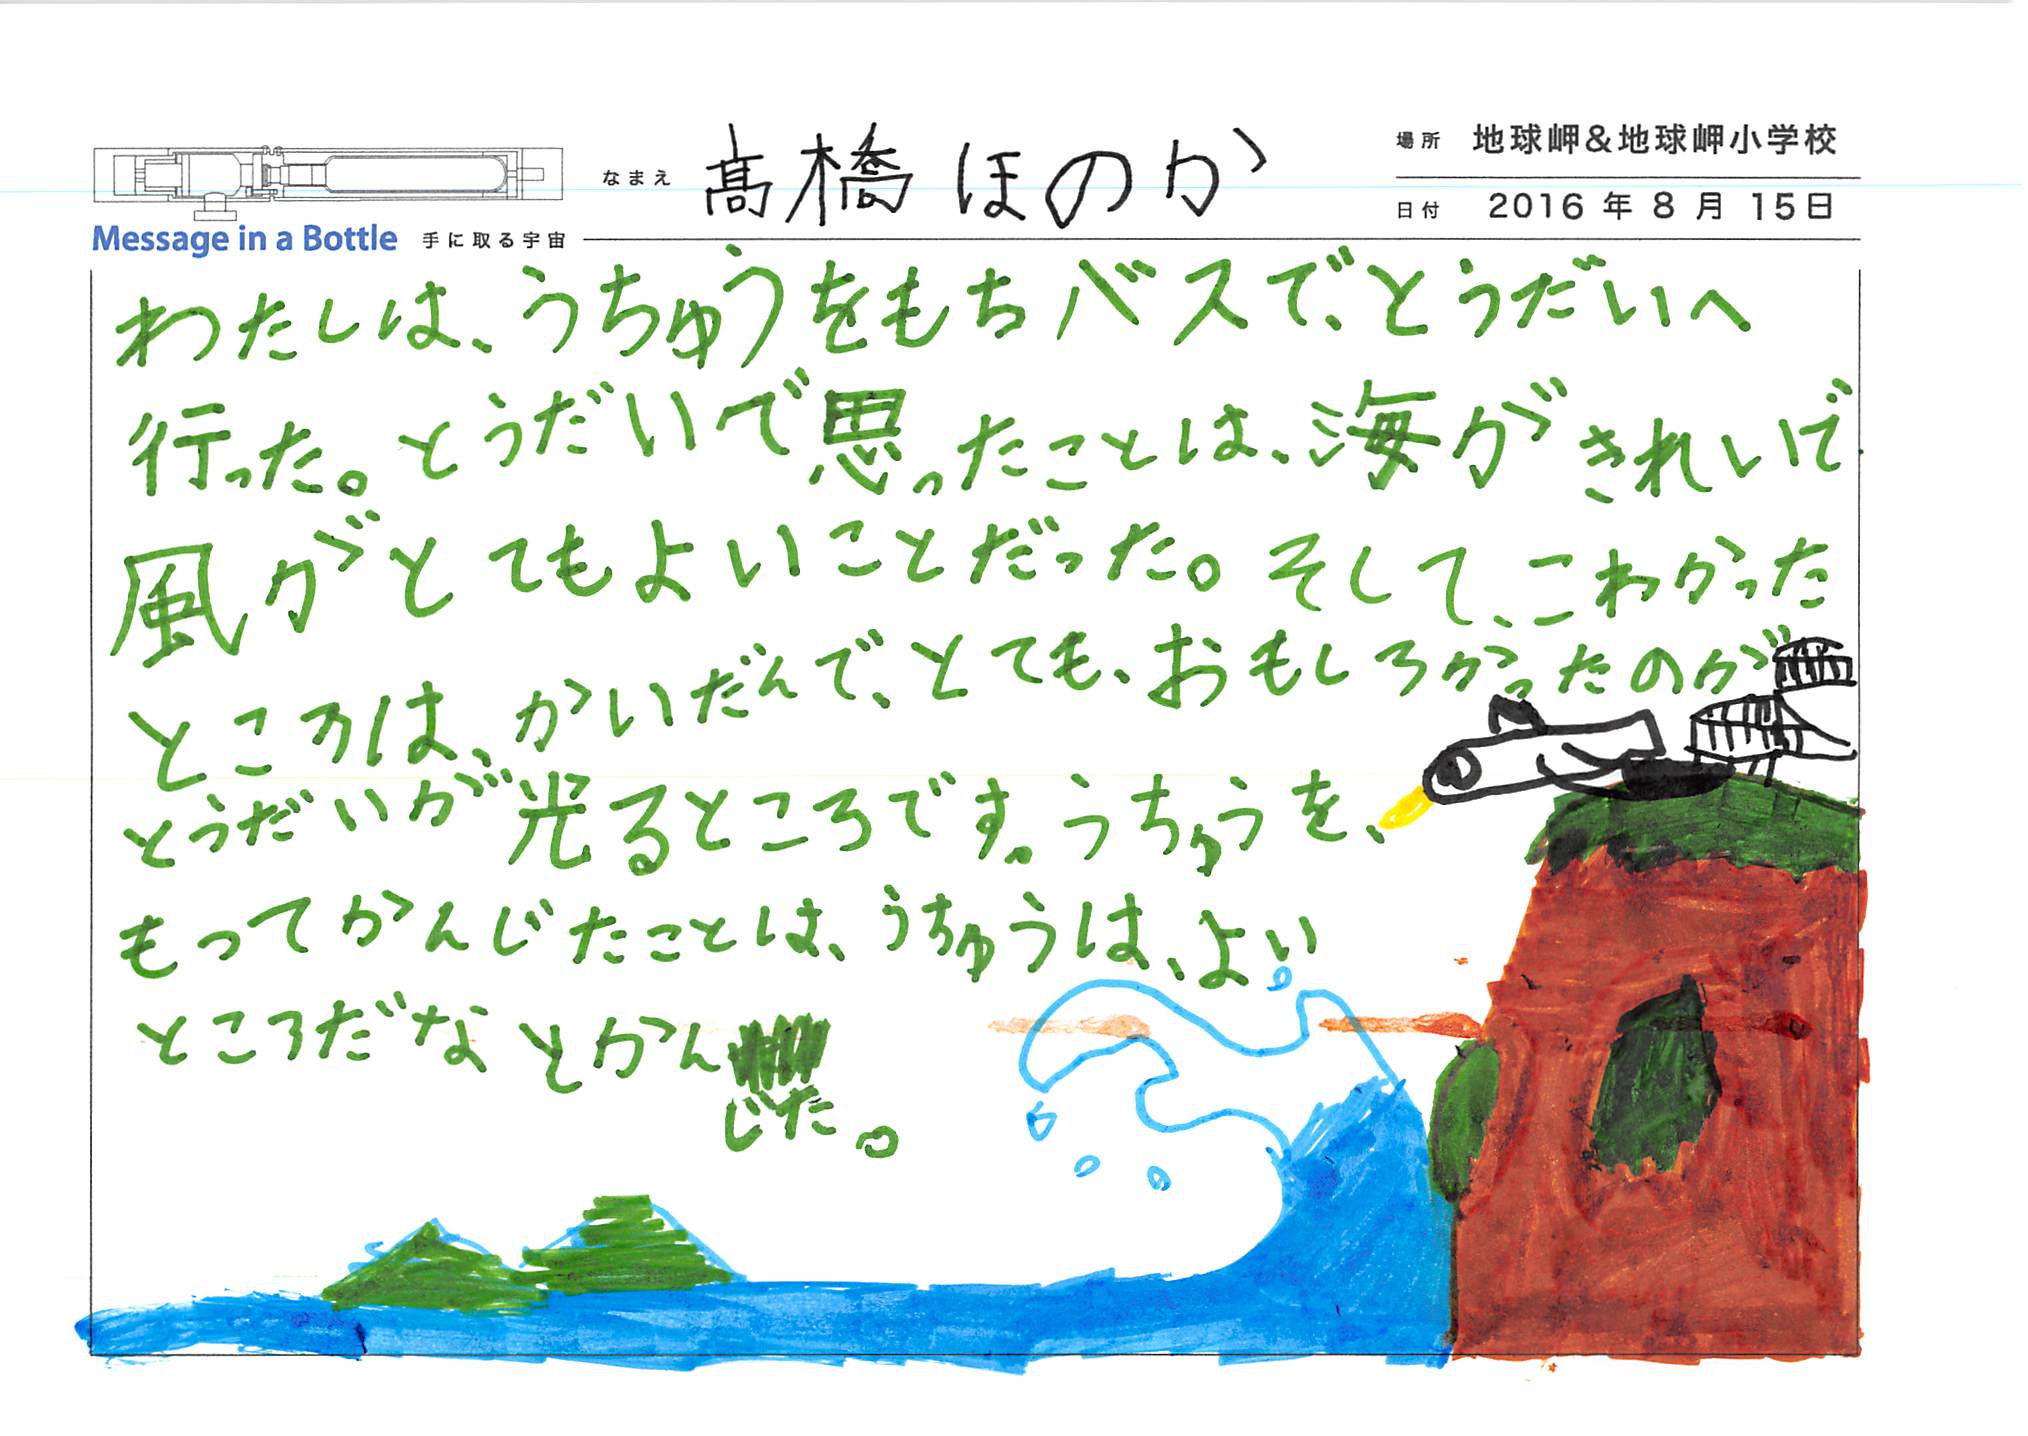 なまえ 髙橋 ほのか
場所 地球岬&地球岬小学校
日付 2016年8月15日
Message in a Bottle 手に取る宇宙
わたしは、うちゅうをもちバスで、とうだいへ
行った。とうだいで思ったことは、海がきれいで
風がとてもよいことだった。そして、こわかった
ところは、かいだんで、とても、おもしろかったのが
とうだいが光るところです。うちゅうを、
もってかんじたことは、うちゅうは、よい
ところだなとかん
じた。